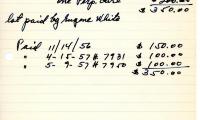 $ 350.00
lot paid by Eugene White
Paid 11/14/56 $ 150.00
" 4-15-57 # 7931 $ 100.00
" 5-9-57 # 7950 $ 100.00
$ 350.00